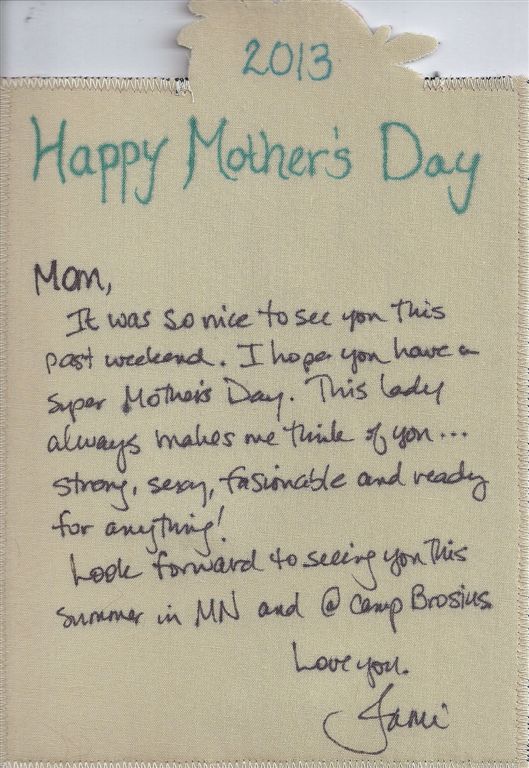 2013
Happy Mother's Day
Mom,
It was so nice to see you this
past weekend. I hope you have a
super Mother's Day. This lady
always makes me think of you...
strong, sexy, fasionable and ready
for anything!
Look forward to seeing you this
summer in MN and @ Camp Brosius.
Love you.
Jami